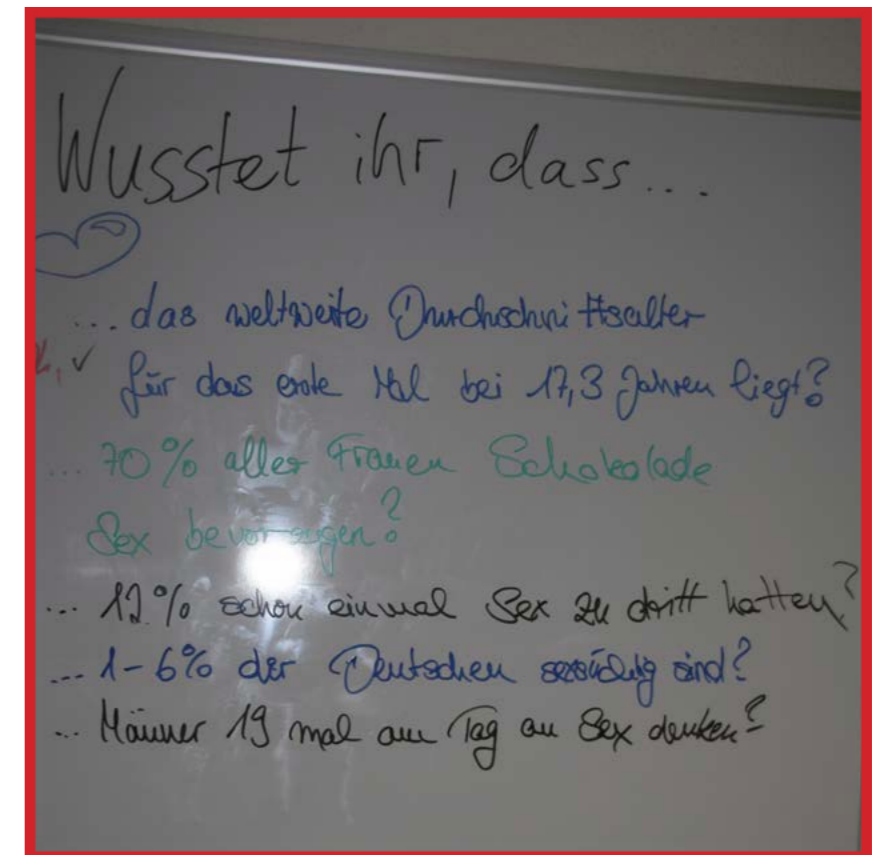 Wusstet ihr, dass...
... das weltweite Durchschnittsalter
für das erste Mal bei 17,3 Jahren liegt?
... 70% aller Frauen Schokolade
Sex bevorzugen?
... 12% schon einmal Sex zu dritt hatten?
... 1-6% der Deutschen sexsüchtig sind?
... Männer 19 mal am Tag an Sex denken?